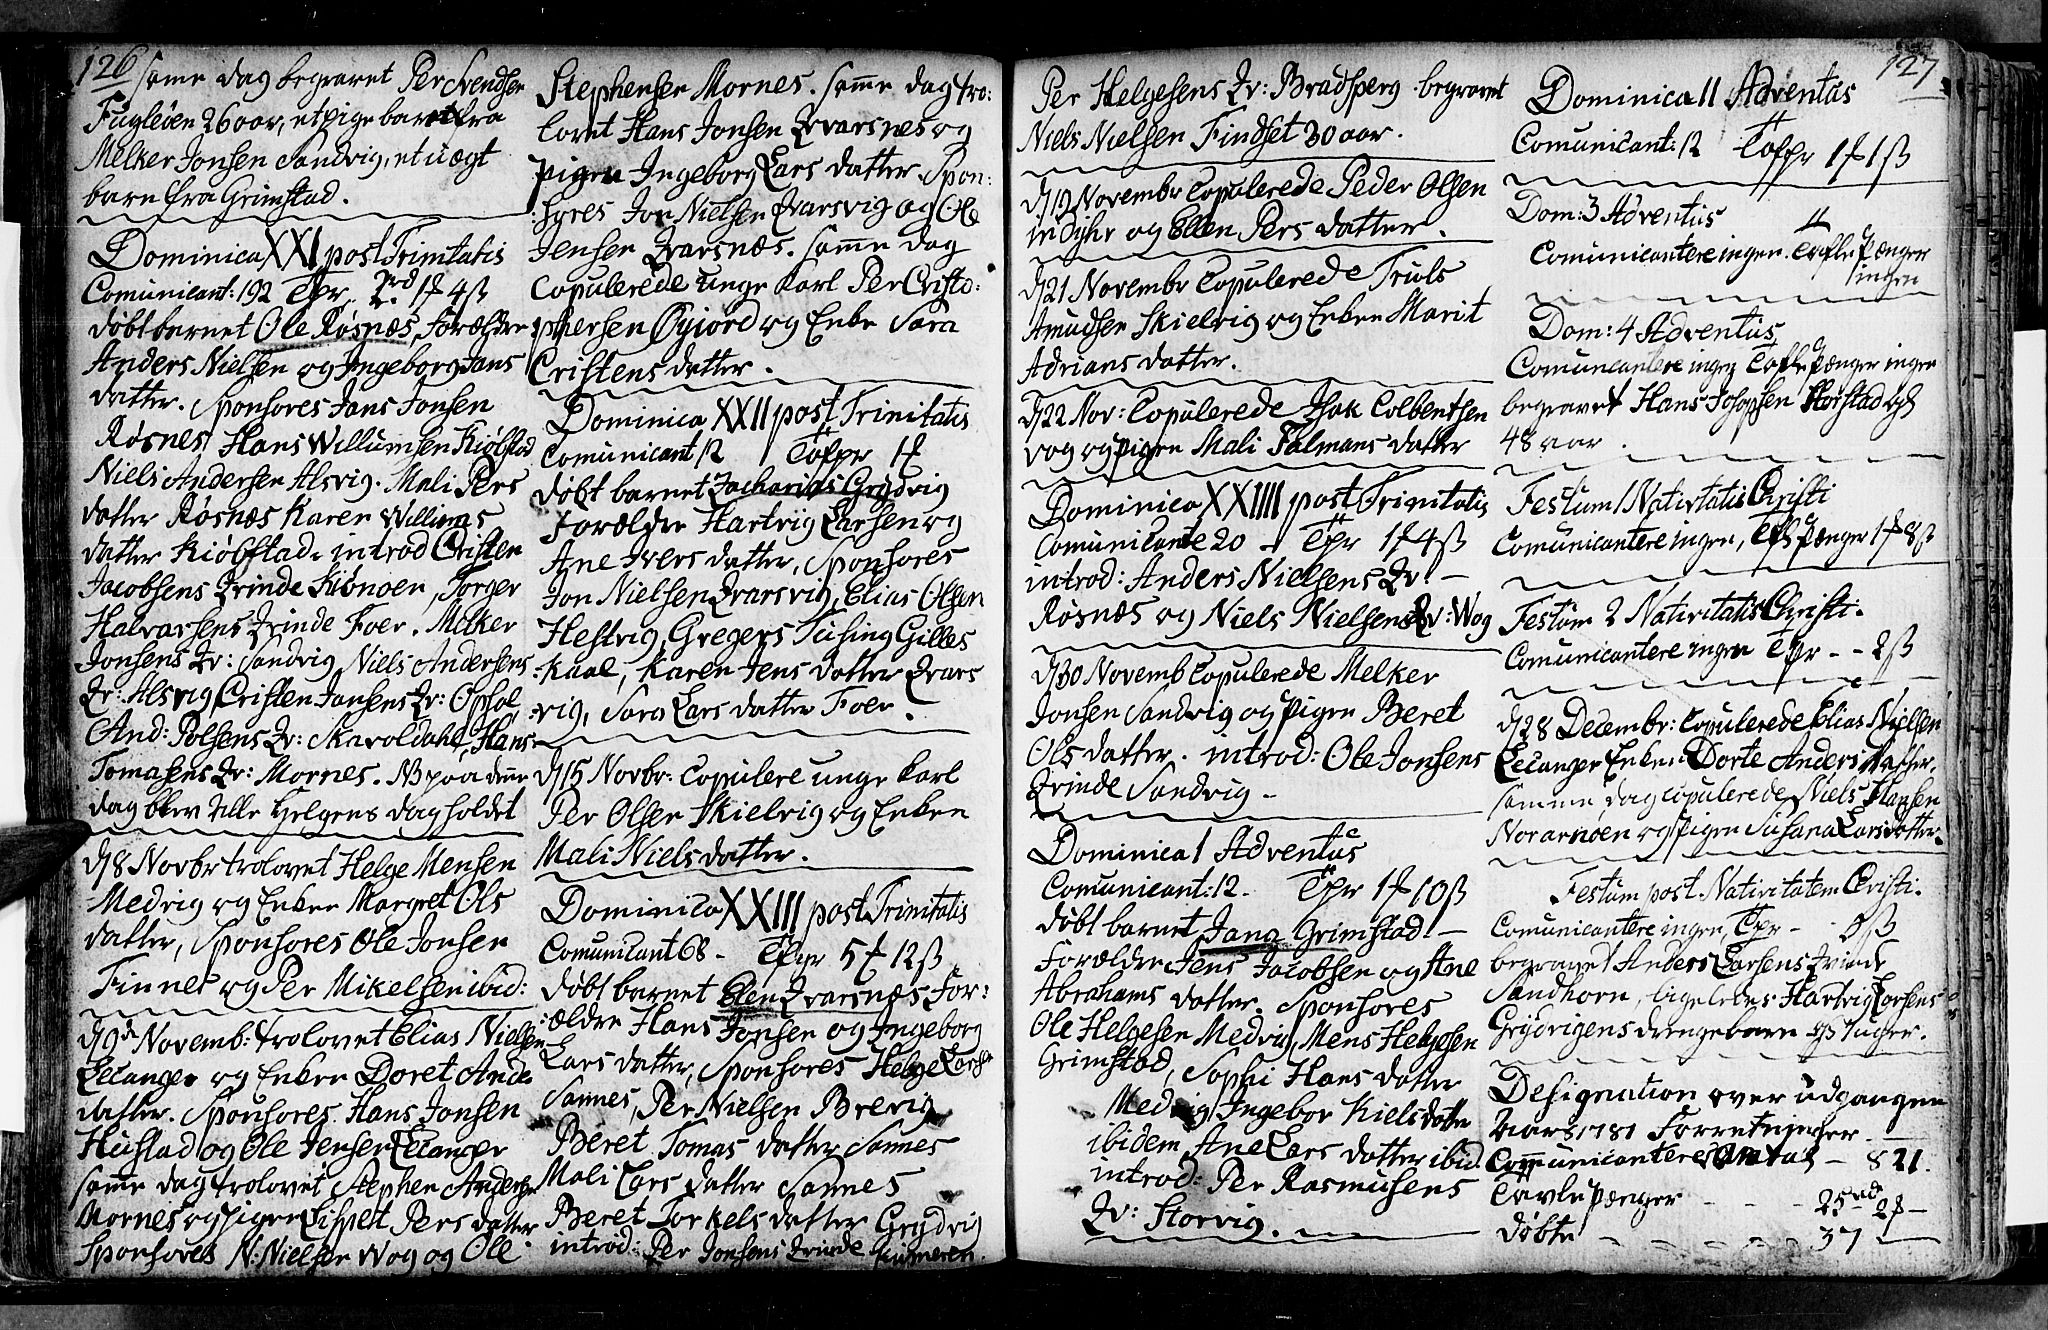 126
same dag begravet Per Svendsen
Fugløen 26 aar, et pige barn fra
Melker Jonsen Sandvig, et uægt
barn fra Grimstad.
Dominica XXI post Trinitatis
Comunicant: 192 Tpr. 2rd 1f 4ß
døbt barnet Ole Røsnæs, forældre
Anders Nielsen og Ingeborg Jans
datter. Sponsores Jans Jonsen
Røsnes, Hans Willumsen Kiølstad
Niels Andersen Alsvig. Mali Pers
datter Røsnæs Karen Willums
datter Kiølstad. introd Cristen
Jacobsens Qvinde, Torger
Halvarsens Qvinde Foer. Melker
Jonsens Qv: Sandvig, Niels Andersens
Qv: Alsvig Cristen Jansens Qv: Ophøl
And: Polsens Qv: Skavoldahl, Hans
Tomasens Qv: Mornes. NB paa denne
dag blev Alle Helgens dag holdet
d 8 Novbr trolovet Helge Mensen
Medvig og Enken Margret Ols
datter, Sponsores Ole Jonsen
Finnes og Per Mikelsen ibid:
d 9de Novemb: trolovet Elias Nielsen
Lecanger og Enken Doret Ande
datter. Sponsores. Hans Jonsen
Hustad og Ole Jensen Lecanger
samme dag trolovet Stephen Andersen
Mornes og pigen Lisspet Pers datter
Sponsores N: Nielsen Wog og Ole
Stephensen Mornes. samme dag tro:
lovet Hans Jonsen Qvarsnes og
Pigen Ingeborg Lars datter. Spon:
sores Jon Nielsen Qvarsvig og Ole
Jensen Qvarsnæs. samme dag
Copulerede unge Karl Per Cristo:
phersen Øyjord og Enke Sara
Cristens datter.
Dominica XXII post Trinitatis
Comunicant 12 Tofpr 1f
døbt barnet Zacharias Grydvig
Forældre Hartvig Larsen og
Ane Ivers datter, Sponsores
Jon Nielsen Qvarsvig, Elias Olsen
Hestvig, Gregers Tusing Gilles
:kaal, Karen Jens datter Qvars
:vig, Sara Lars datter Foer.
d 15 Novbr: Copulere unge Karl
Per Olsen Skielvig og Enken
Mali Niels datter.
Dominica XXIII post Trinitatis
Comunicant 68 - Tafpr 5f 12ß
døbt barnet Elen Qvarsnæs For:
:ældre Hans Jonsen og Ingeborg
Lars datter, Sponsores Helge Larsen
Sannes, Per Nielsen Brevig
Beret Tomas datter Sannes
Mali Lars datter Sannes
Beret Torkels datter Grydvig
introd: Per Jonsens Qvinde
127
Per Helgesens Qv: Bradsperg begravet
Niels Nielsen Findset 30 aar.
d 19 Novembr Copulerede Peder Olsen
Indyhr og Ellen Pers datter.
d 21 Novembr Copulerede Truls
Amudsen Skielvig og Enken Marit
Adrians datter.
d 22 Nov: Copulerede Isak Colbentsen
vog og pigen Mali Falmans datter
Dominica XXIIII post Trinitatis
Comunicante 20 - Tpr 1f 4ß
introd: Anders Nielsens Qv: -
Røsnæs og Niels Nielsens Qv: Wog
d 30 Novemb Copulerede Melker
Jonsen Sandvig og Pigen Beret
Ols datter. introd: Ole Jonsens
Qvinde Sandvig -
Dominica 1 Adventus
Comunicant: 12 - Tpr 1f 10ß
døbt barnet Jana Grimstad -
Forældre Jens Jacobsen og Ane
Abrahams datter. Sponsores
Ole Helgesen Medvig, Mens Helgesen
Grimstad, Sophi Hans datter
Medvig, Ingebor Kiels datter
ibidem, Ane Lars datter ibid.
introd: Per Rasmusens
Qv: Storvig.
Dominica II Adventus
Comunicant: 12 Tafpr 1f 1ß
Dom: 3 Adventus
Comunicantere ingen. Tafle Pænger
ingen
Dom: 4 Adventus
Comunicantere ingen Tafle Pænger ingen
begravet Hans Josopsen Horstad
48 aar.
Festum 1 Nativitatis Christi
Comunicantere ingen, Tafl Pænger 1f 8ß
Festum 2 Nativitatis Christi.
Comunicantere ingen Tpr - - 2ß
d 28 Decembr: Copulerede Elias Nielsen
Lecanger Enken Dorte Anders datter.
samme dag copulerede Niels Hansen
Norarnøen og Pigen Susana Larsdatter.
Festum post Nativitatem Cristi.
Comunicantere ingen, Tpr - 8ß
begravet Anders Larsens Qvinde
Sandhorn, ligeledes Hartvig Larsens
Grydvigens drengebarn 8 Uger.
Designation over udgangne
Aars 1781 Forretninger
Communicanteres Antal - 821.
Tavle Pænger - - - 25rd 2f -
døbte - - - - - 37 -